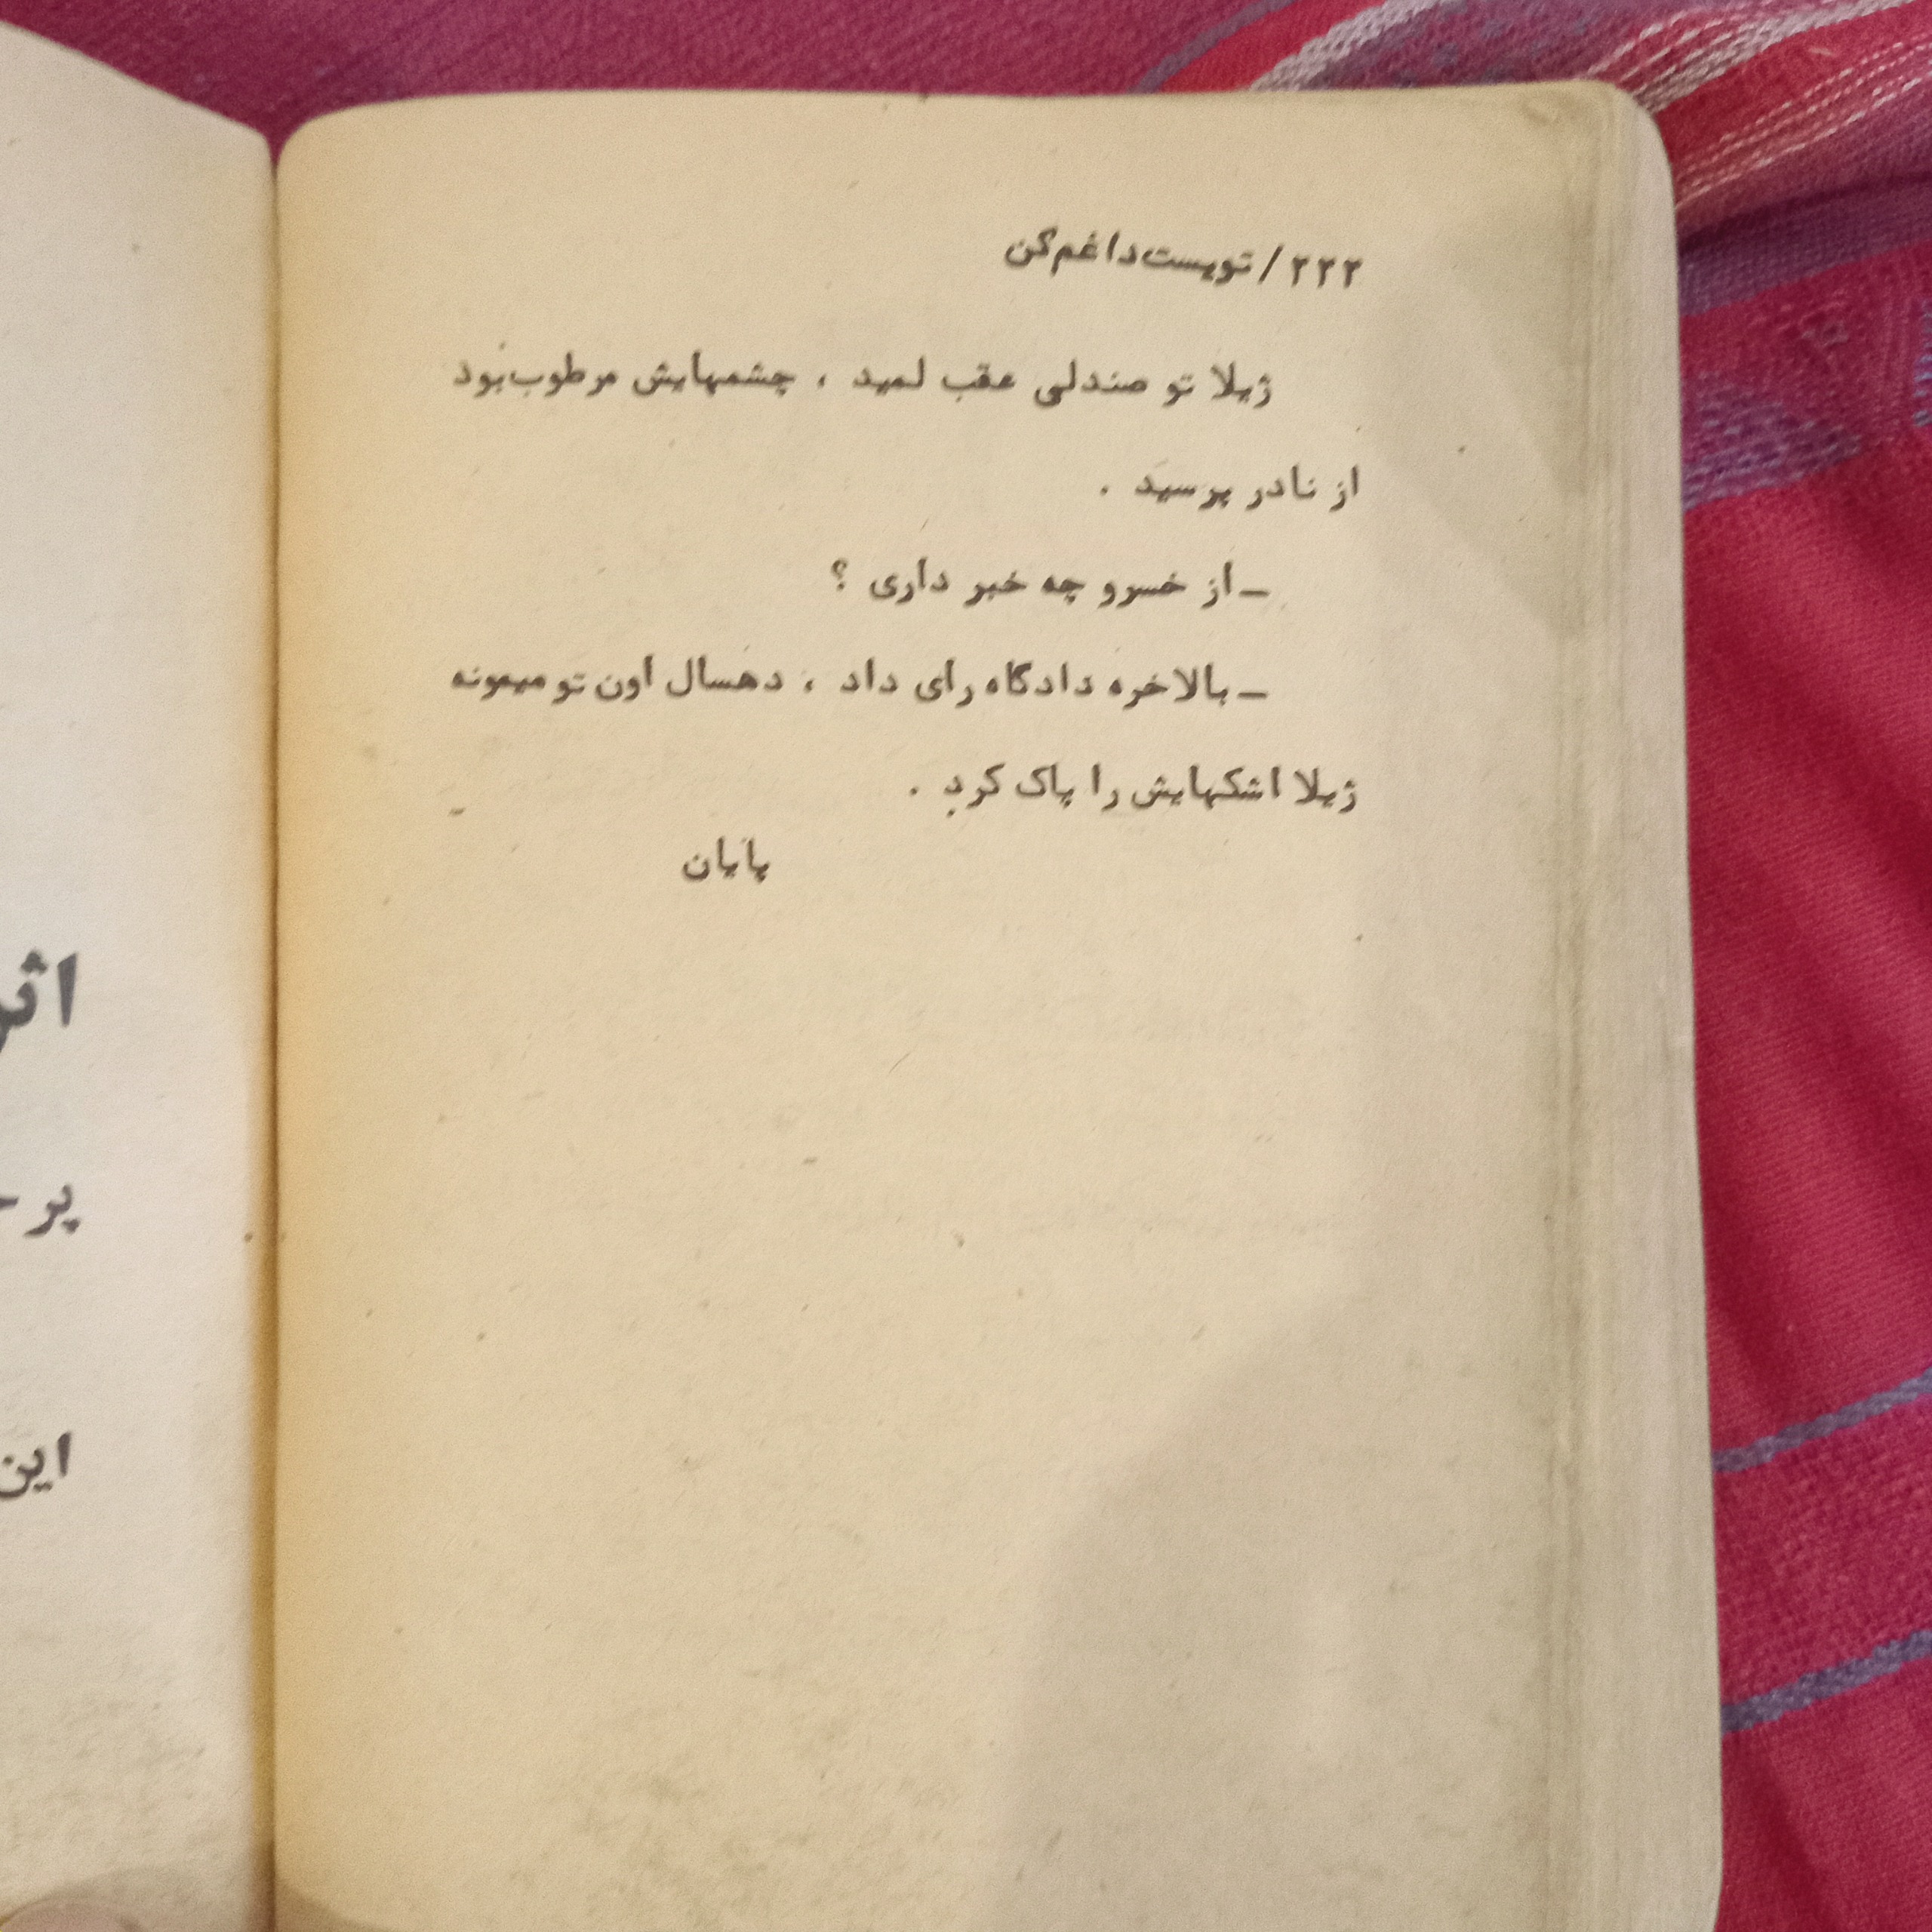 ۲۲۲ / تویست داغم کن
ژیلا تو صندلی عقب لمید ، چشمهایش مرطوب بود
از نادر پرسید .
ـ از خسرو چه خبر داری ؟
ـ بالاخره دادگاه رای داد ، دهسال اون تو میمونه
ژیلا اشکهایش را پاک کرد .
پایان
این